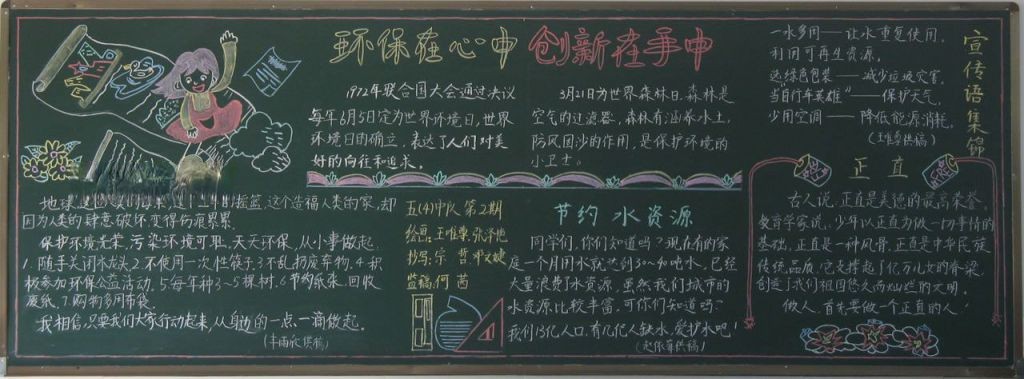 环保在心中 创新在手中
1972年联合国大会通过决议
每年6月5日定为世界环境日,世界
环境日的确立,表达了人们对美
好的向往和追求。
3月21日为世界森林日,森林是
空气的过滤器,森林有涵养水土,
防风固沙的作用,是保护环境的
小卫士。
宣传语集锦
一水多用——让水重复使用,
利用可再生资源,
选绿色包装——减少垃圾灾害,
当自行车英雄"——保护天气,
少用空调——降低能源消耗,
供稿)
地球 摇篮,这个造福人类的家,却
因为人类的肆意破坏,变得伤痕累累。
保护环境光荣,污染环境可耻,天天环保,从小事做起。
1.随手关闭水龙头2.不使用一次性筷子3.不乱扔废弃物,4.积
极参加环保公益活动,5.每年种3~5棵树.6.节约纸张,回收
废纸,7.购物多用布袋。
我相信,只要我们大家行动起来,从身边的一点、一滴做起。
供稿)
五(4)中队 第2期
绘画:
抄写:
监稿:何茜
节约水资源
同学们,你们知道吗?现在有的家
庭一个月用水就达到 吨水,已经
大量浪费了水资源,虽然我们城市的
水资源比较丰富,可你们知道吗?
我们13亿人口,有几亿人缺水,爱护水吧!
供稿)
正直
古人说,正直是美德的最高荣誉。
教育学家说,少年以正直为做一切事情的
基础,正直是一种风骨,正直是中华民族
传统品质,它支撑起了亿万儿女的脊梁,
创造了我们祖国悠久而灿烂的文明。
做人,首先要做一个正直的人!